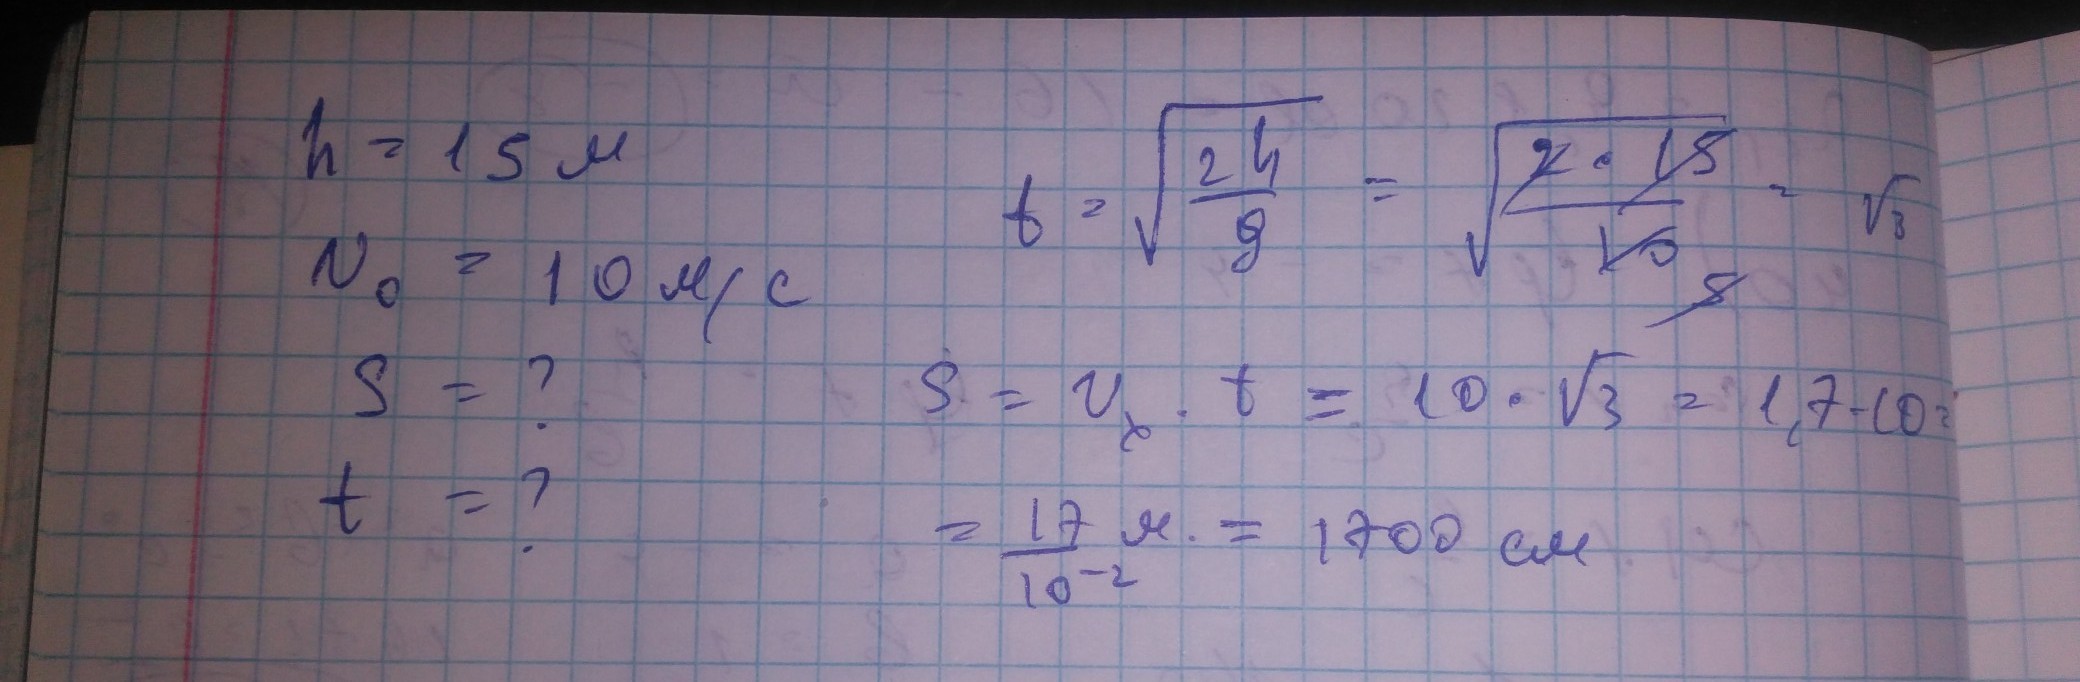 h = 15 м
v₀ = 10 м/с
S = ?
t = ?
t = √(2h/g) = √(2 · 15/10) = √3
5
S = vₓ · t = 10 · √3 = 1,7·10 =
= 17/10⁻² м. = 1700 см